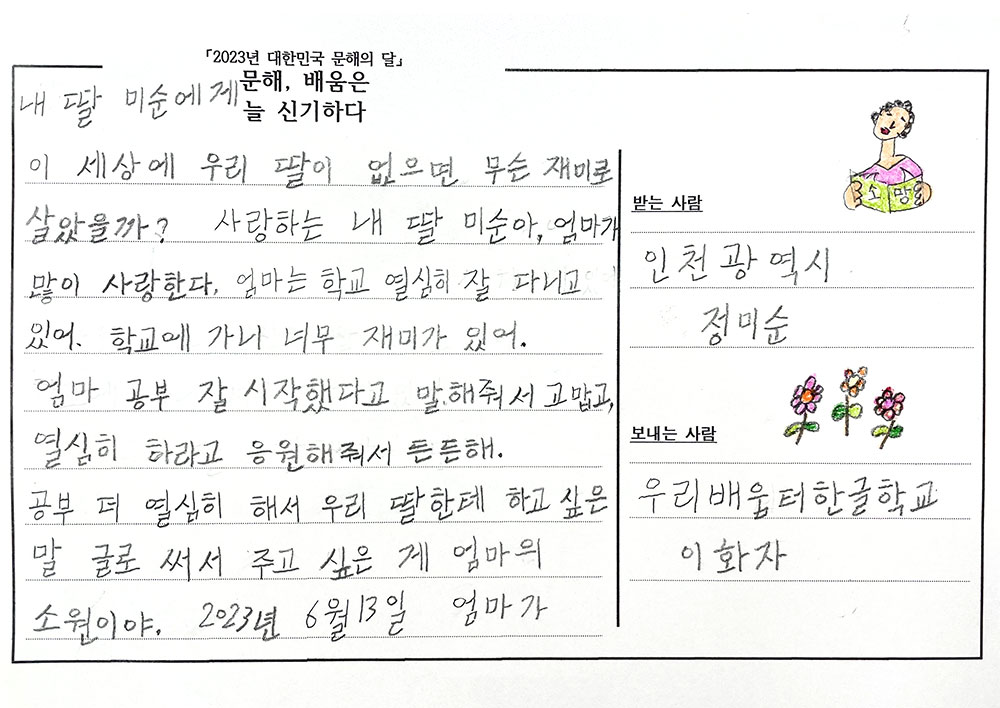 「2023년 대한민국 문해의 달」
문해, 배움은
늘 신기하다
내 딸 미순에게
이 세상에 우리 딸이 없으면 무슨 재미로
살았을까? 사랑하는 내 딸 미순아, 엄마가
많이 사랑한다. 엄마는 학교 열심히 잘 다니고
있어. 학교에 가니 너무 재미가 있어.
엄마 공부 잘 시작했다고 말해줘서 고맙고,
열심히 하라고 응원해줘서 든든해.
공부 더 열심히 해서 우리 딸한테 하고 싶은
말 글로 써서 주고 싶은 게 엄마의
소원이야. 2023년 6월 13일 엄마가
소망
받는 사람
인천광역시
정미순
보내는 사람
우리배움터한글학교
이화자